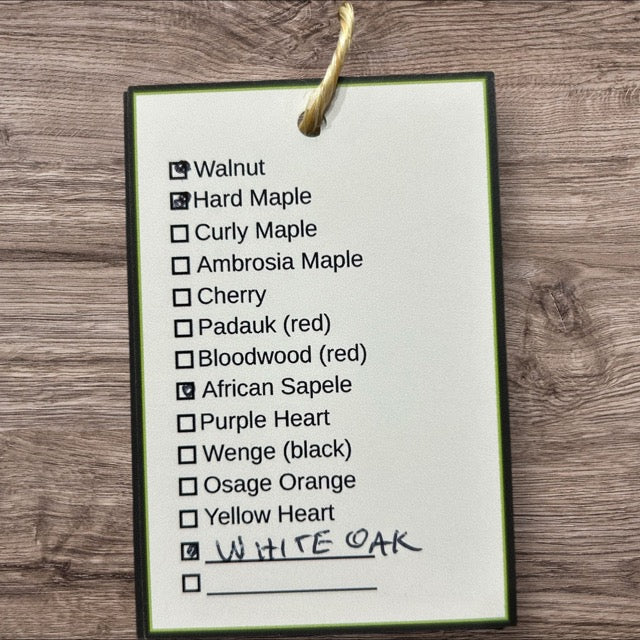 Walnut
Hard Maple
Curly Maple
Ambrosia Maple
Cherry
Padauk (red)
Bloodwood (red)
African Sapele
Purple Heart
Wenge (black)
Osage Orange
Yellow Heart
WHITE OAK